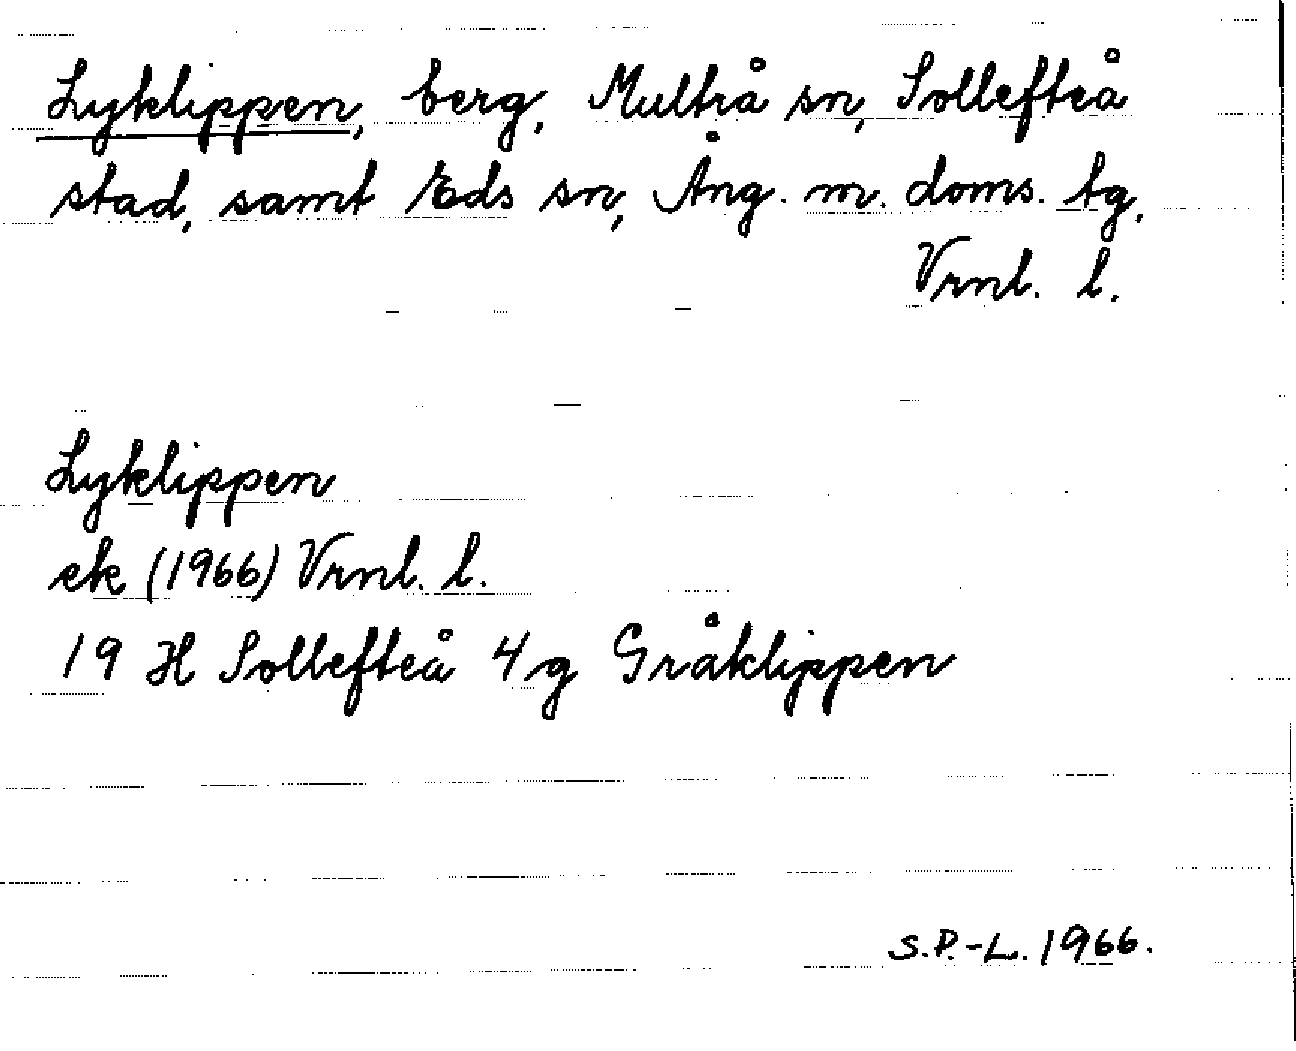 Lyklippen, berg, Multrå sn, Sollefteå
stad, samt Eds sn, Ång. m. doms. tg,
Vrnl. l.
Lyklippen
ek (1966) Vrnl. l.
19 H Sollefteå 4 g Gråklippen
S.P.-L. 1966.